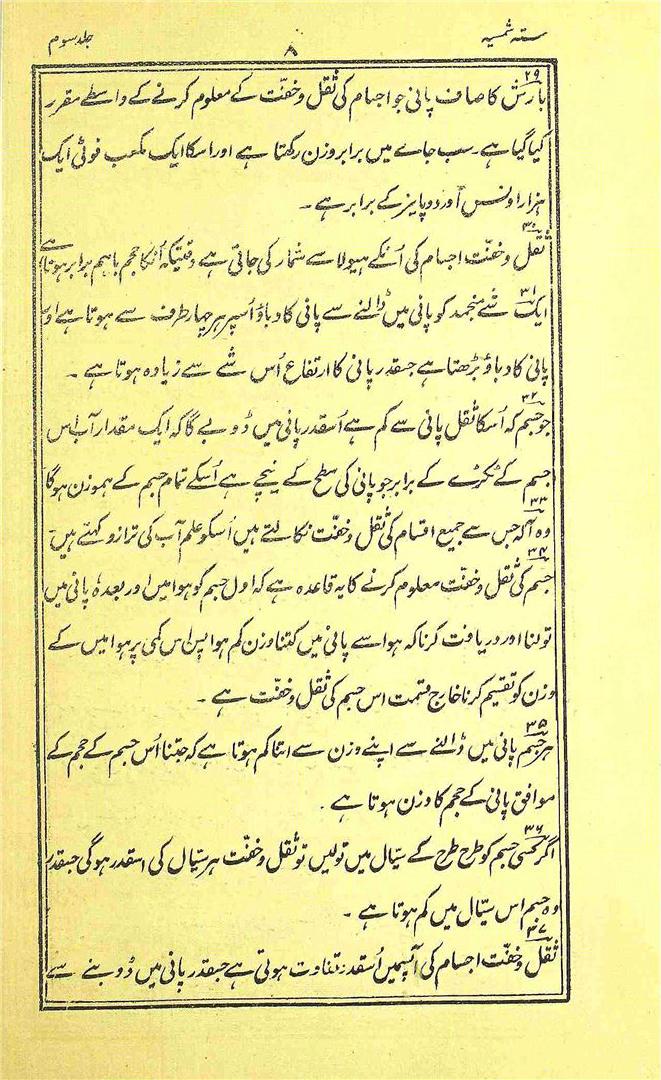 ستہ شمسیہ ۸ جلد سوم
۲۹
بارش کا صاف پانی جو اجسام کی ثقل و خفّت کے معلوم کرنے کے واسطے مقرر
کیا گیا ہے۔ سب جاے میں برابر وزن رکھتا ہے اور اسکا ایک مکعب فوٹ ایک
ہزار اونس آور دو پایز کے برابر ہے۔
۳۰
ثقل و خفّت اجسام کی اُنکے ہیولا سے شمار کی جاتی ہے وقتیکہ اُنکا حجم باہم برابر ہوتا ہے
۳۱
ایک شے منجمد کو پانی میں ڈالنے سے پانی کا دباؤ اُسپر ہر چہار طرف سے ہوتا ہے اور
پانی کا دباؤ بڑھتا ہے جسقدر پانی کا ارتفاع اُس شے سے زیادہ ہوتا ہے۔
۳۲
جو جسم کہ اُسکا ثقل پانی سے کم ہے اُسقدر پانی میں ڈوبے گا کہ ایک مقدار آب اس
جسم کے ٹکڑے کے برابر جو پانی کی سطح کے نیچے ہے اُسکے تمام جسم کے ہموزن ہوگا
۳۳
وہ آلہ جس سے جمیع اقسام کی ثقل و خفّت نکالتے ہیں اُسکو علم آب کی ترازو کہتے ہیں۔
۳۴
جسم کی ثقل و خفّت معلوم کرنے کا یہ قاعدہ ہے کہ اول جسم کو ہوا میں اور بعدہٗ پانی میں
تولنا اور دریافت کرنا کہ ہوا سے پانی میں کتنا وزن کم ہوا پس اس کمی پر ہوا میں کے
وزن کو تقسیم کرنا خارج قسمت اس جسم کی ثقل و خفّت ہے۔
۳۵
ہر جسم پانی میں ڈالنے سے اپنے وزن سے اتنا کم ہوتا ہے کہ جتنا اُس جسم کے حجم کے
موافق پانی کے حجم کا وزن ہوتا ہے۔
۳۶
اگر کسی جسم کو طرح طرح کے سیّال میں تولیں تو ثقل و خفّت ہر سیّال کی اسقدر ہوگی جسقدر
وہ جسم اس سیّال میں کم ہوتا ہے۔
۳۷
ثقل و خفّت اجسام کی آپسمیں اُسقدر متفاوت ہوتی ہے جسقدر پانی میں ڈوبنے سے